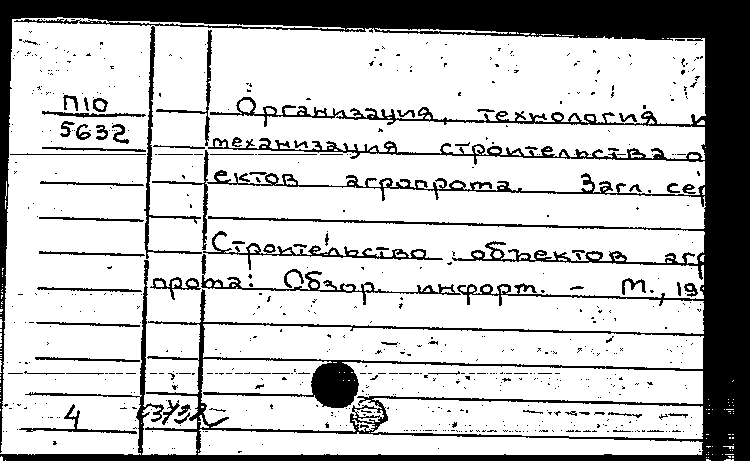 П10
5632
Организация, технология и
механизация строительства об
ектов агропрома. Загл. сер
Строительство объектов агр
прома: Обзор. информ. – М., 19
4